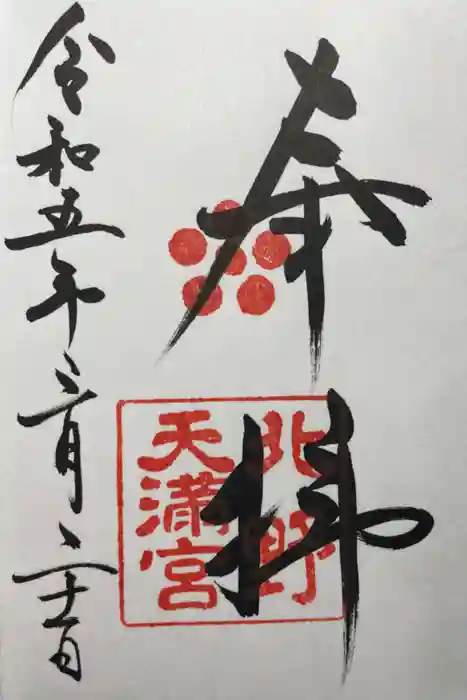 奉拝
北野
天満宮
令和五年二月二十一日